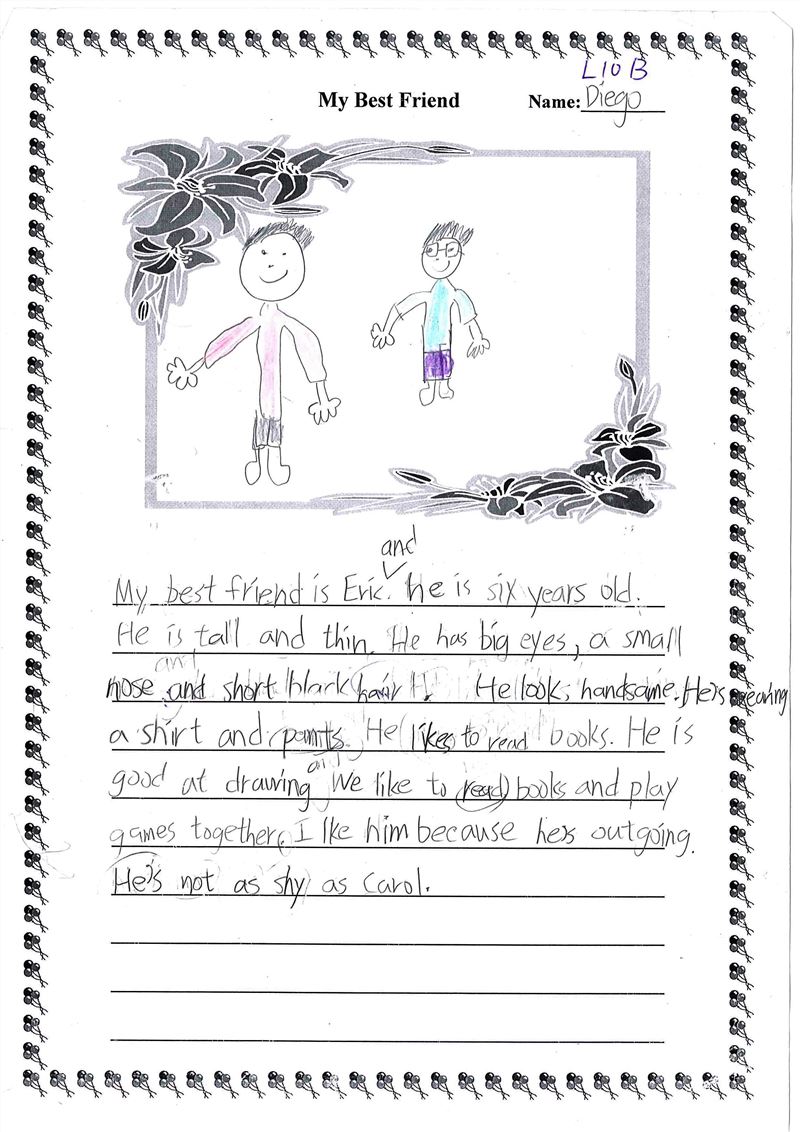 L10B
My Best Friend Name: Diego
and
My best friend is Eric. he is six years old.
He is tall and thin. He has big eyes, a small
and
nose and short black hair. He looks handsome. He's wearing
a shirt and pants. He likes to read books. He is
and
good at drawing We like to read books and play
games together. I lke him because he's outgoing.
He's not as shy as Carol.